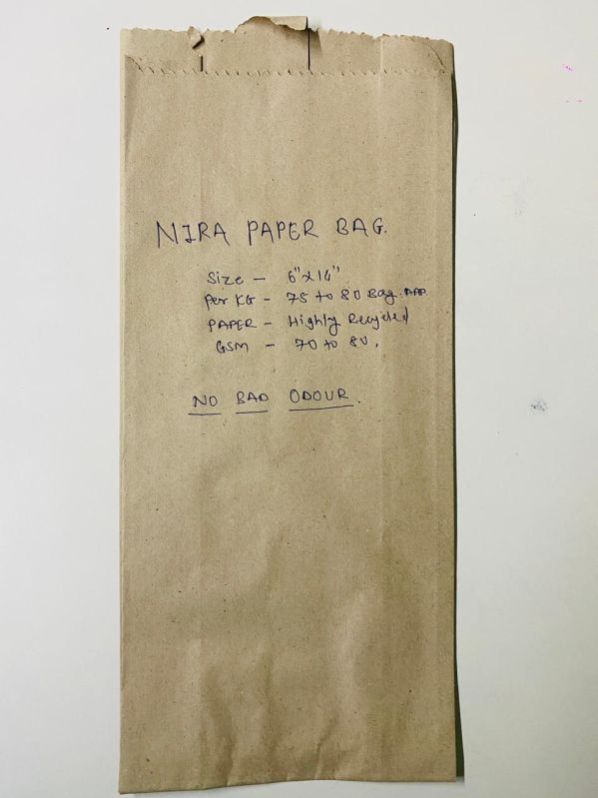 NIRA PAPER BAG.
Size - 6"x14"
Per KG - 75 to 80 Bag. APP.
PAPER - Highly Recycled
GSM - 70 to 80.
NO BAD ODOUR.